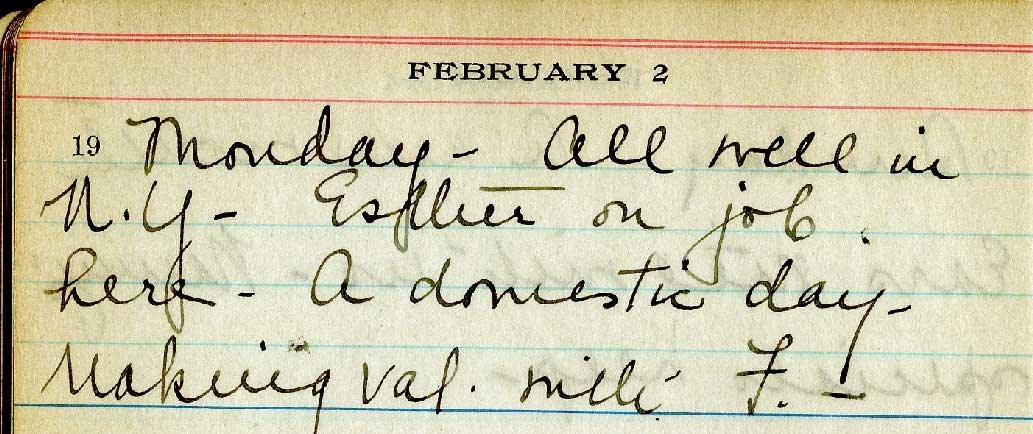 FEBRUARY 2
19 Monday - All well in
N.Y - Esther on job
here - A domestic day -
Making Val. with F. -